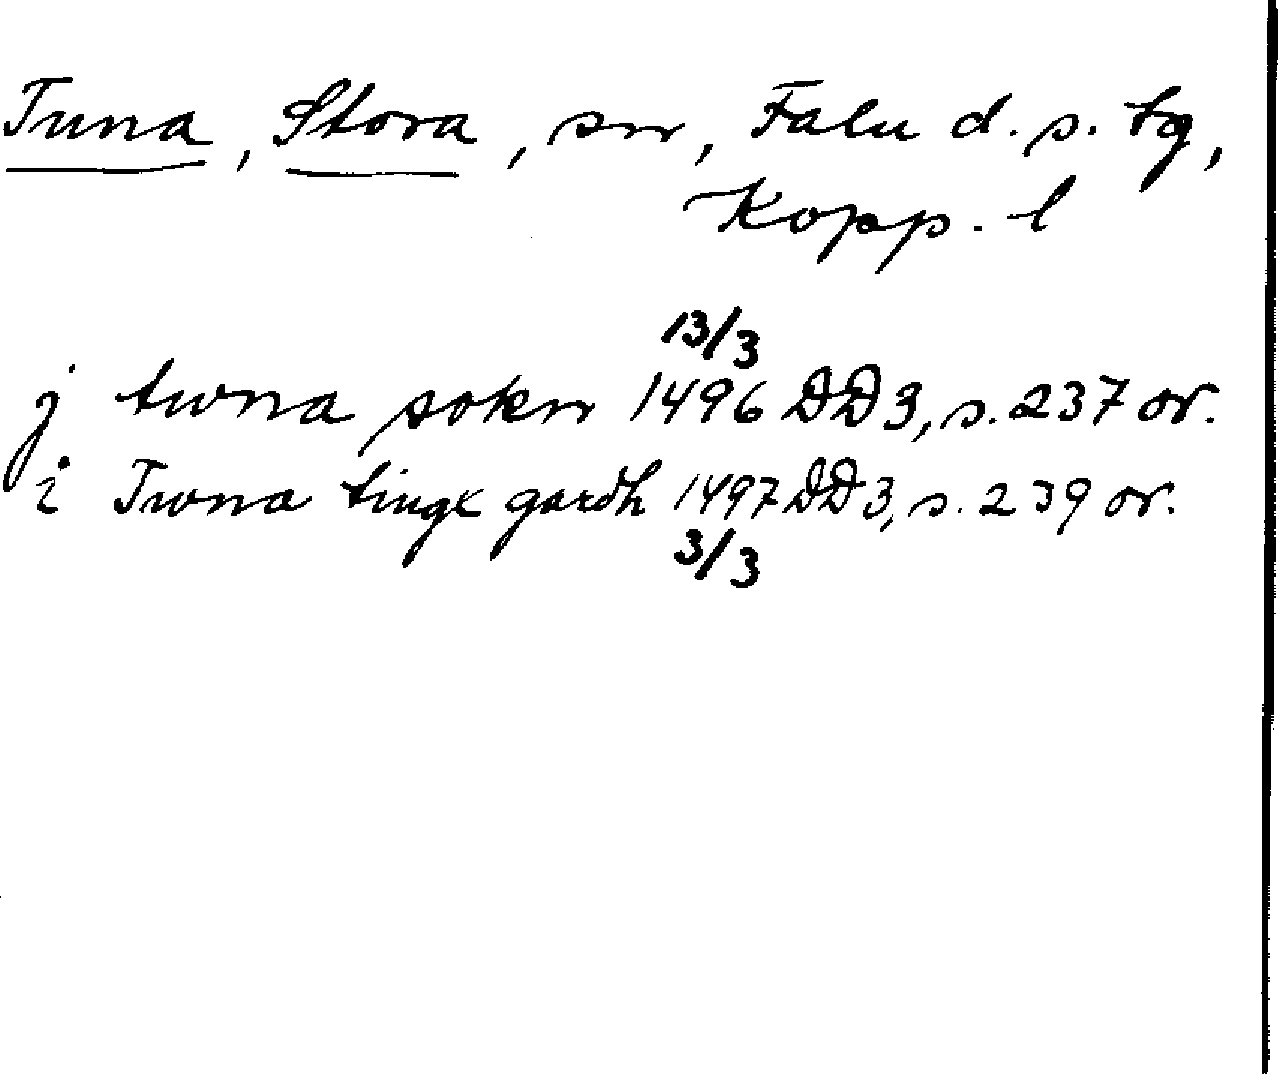 Tuna, Stora, sn, Falu d. s. tg,
Kopp. l
13/3
j twna sokn 1496 DD3, s. 237 or.
i Twna tingx gardh 1497 DD3, s. 239 or.
3/3